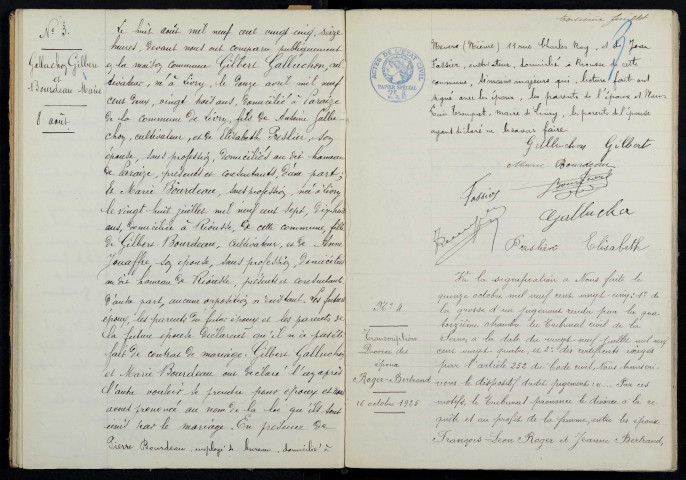 N° 3.
Galluchon Gilbert
et
Bourdeau Marie
8 août
Le huit août mil neuf cent vingt cinq, seize
heures, devant nous ont comparu publiquement
en la maison commune Gilbert Galluchon, cul-
tivateur, né à Livry, le douze avril mil neuf
cent deux, vingt trois ans, domicilié à Paraize
de la commune de Livry, fils de Antoine Gallu-
chon, cultivateur, et de Elisabeth Preslier, son
épouse, sans profession, domiciliés au dit hameau
de Paraize, présents et consentants, d'une part;
et Marie Bourdeau, sans profession, née à Livry
le vingt huit juillet mil neuf cent sept, dix huit
ans, domiciliée à Riousse, de cette commune, fille
de Gilbert Bourdeau, cultivateur, et de Anne
Jouaffre, son épouse, sans profession, domiciliés
au dit hameau de Riousse, présents et consentant
d'autre part, aucune opposition n'existant. Les futurs
époux, les parents du futur époux et les parents de
la future épouse déclarent qu'il n'a pas été
fait de contrat de mariage. Gilbert Galluchon
et Marie Bourdeau ont déclaré l'un après
l'autre vouloir se prendre pour époux et nous
avons prononcé au nom de la loi qu'ils sont
unis par le mariage. En présence de
Pierre Bourdeau, employé de bureau, domicilié à
troisième feuillet
Nevers (Nièvre) 11 rue Charles Roy, et de Jean
Fassier, instituteur, domicilié à Riousse de cette
commune, témoins majeurs qui, lecture faite ont
signé avec les époux, les parents de l'épouse et Nous
maire de Livry, les parents de l'épouse
ayant déclaré ne savoir faire.
ACTES DE L'ÉTAT CIVIL
PAPIER SPÉCIAL
Galluchon Gilbert
Marie Bourdeau
Fassier
Bourdeau
Galluchon
Preslier Elisabeth
N° 4
Transcription
Divorce des
époux
Roger-Bertrand
15 octobre 1925
Vu la signification à Nous faite le
quinze octobre mil neuf cent vingt-cinq: 1° de
la grosse d'un jugement rendu par la qua-
torzième chambre du Tribunal civil de la
Seine, à la date du vingt-neuf juillet mil neuf
cent vingt-quatre, et 2° des certificats exigés
par l'article 252 du Code civil, Nous transcri-
vons le dispositif dudit jugement: «... Par ces
motifs, le Tribunal prononce le divorce à la re-
quête et au profit de la femme, entre les époux
François-Léon Roger et Jeanne Bertrand,